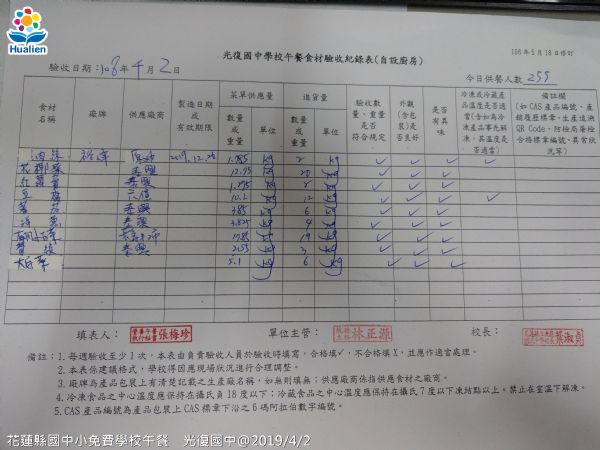 Hualien
106年5月18日修訂
光復國中學校午餐食材驗收紀錄表(自設廚房)
驗收日期:108年4月2日
今日供餐人數 255
食材名稱 廠牌 供應廠商 製造日期或有效期限 菜單供應量 數量或重量 單位 進貨量 數量或重量 單位 驗收數量、重量是否符合規定 外觀(含包裝)是否良好 是否有異味 冷凍或冷藏產品溫度是否適當(含如為冷凍產品事先解凍,其溫度是否適當) 備註欄(如CAS產品編號、產銷履歷標章、生產追溯QR Code、防檢局屠檢合格標章編號、異常狀況等)
2019.12.26 kg 2 kg ✓ ✓ ✓ ✓
花椰菜 12.75 kg 20 kg ✓ ✓ ✓
kg 2 kg ✓ ✓ ✓
10.2 kg 12 kg ✓ ✓ ✓ ✓
3.85 kg 6 kg ✓ ✓ ✓
kg 4 kg ✓ ✓ ✓
kg 19 kg ✓ ✓ ✓
2.55 kg 3 kg ✓ ✓ ✓
大白菜 5.1 kg 6 kg ✓ ✓ ✓
填表人: 張梅珍 單位主管: 林正源 校長: 葉淑貞
備註:1.每週驗收至少1次,本表由負責驗收人員於驗收時填寫,合格填✓,不合格填X,並應作適當處理。
2.本表係建議格式,學校得因應現場狀況進行合理調整。
3.廠牌為產品包裝上有清楚記載之生產廠名稱,如無則填無;供應廠商係指供應食材之廠商。
4.冷凍食品之中心溫度應保持在攝氏負18度以下;冷藏食品之中心溫度應保持在攝氏7度以下凍結點以上。禁止在室溫下解凍。
5.CAS產品編號為產品包裝上CAS標章下沿之6碼阿拉伯數字編號。
花蓮縣國中小免費學校午餐 光復國中@2019/4/2